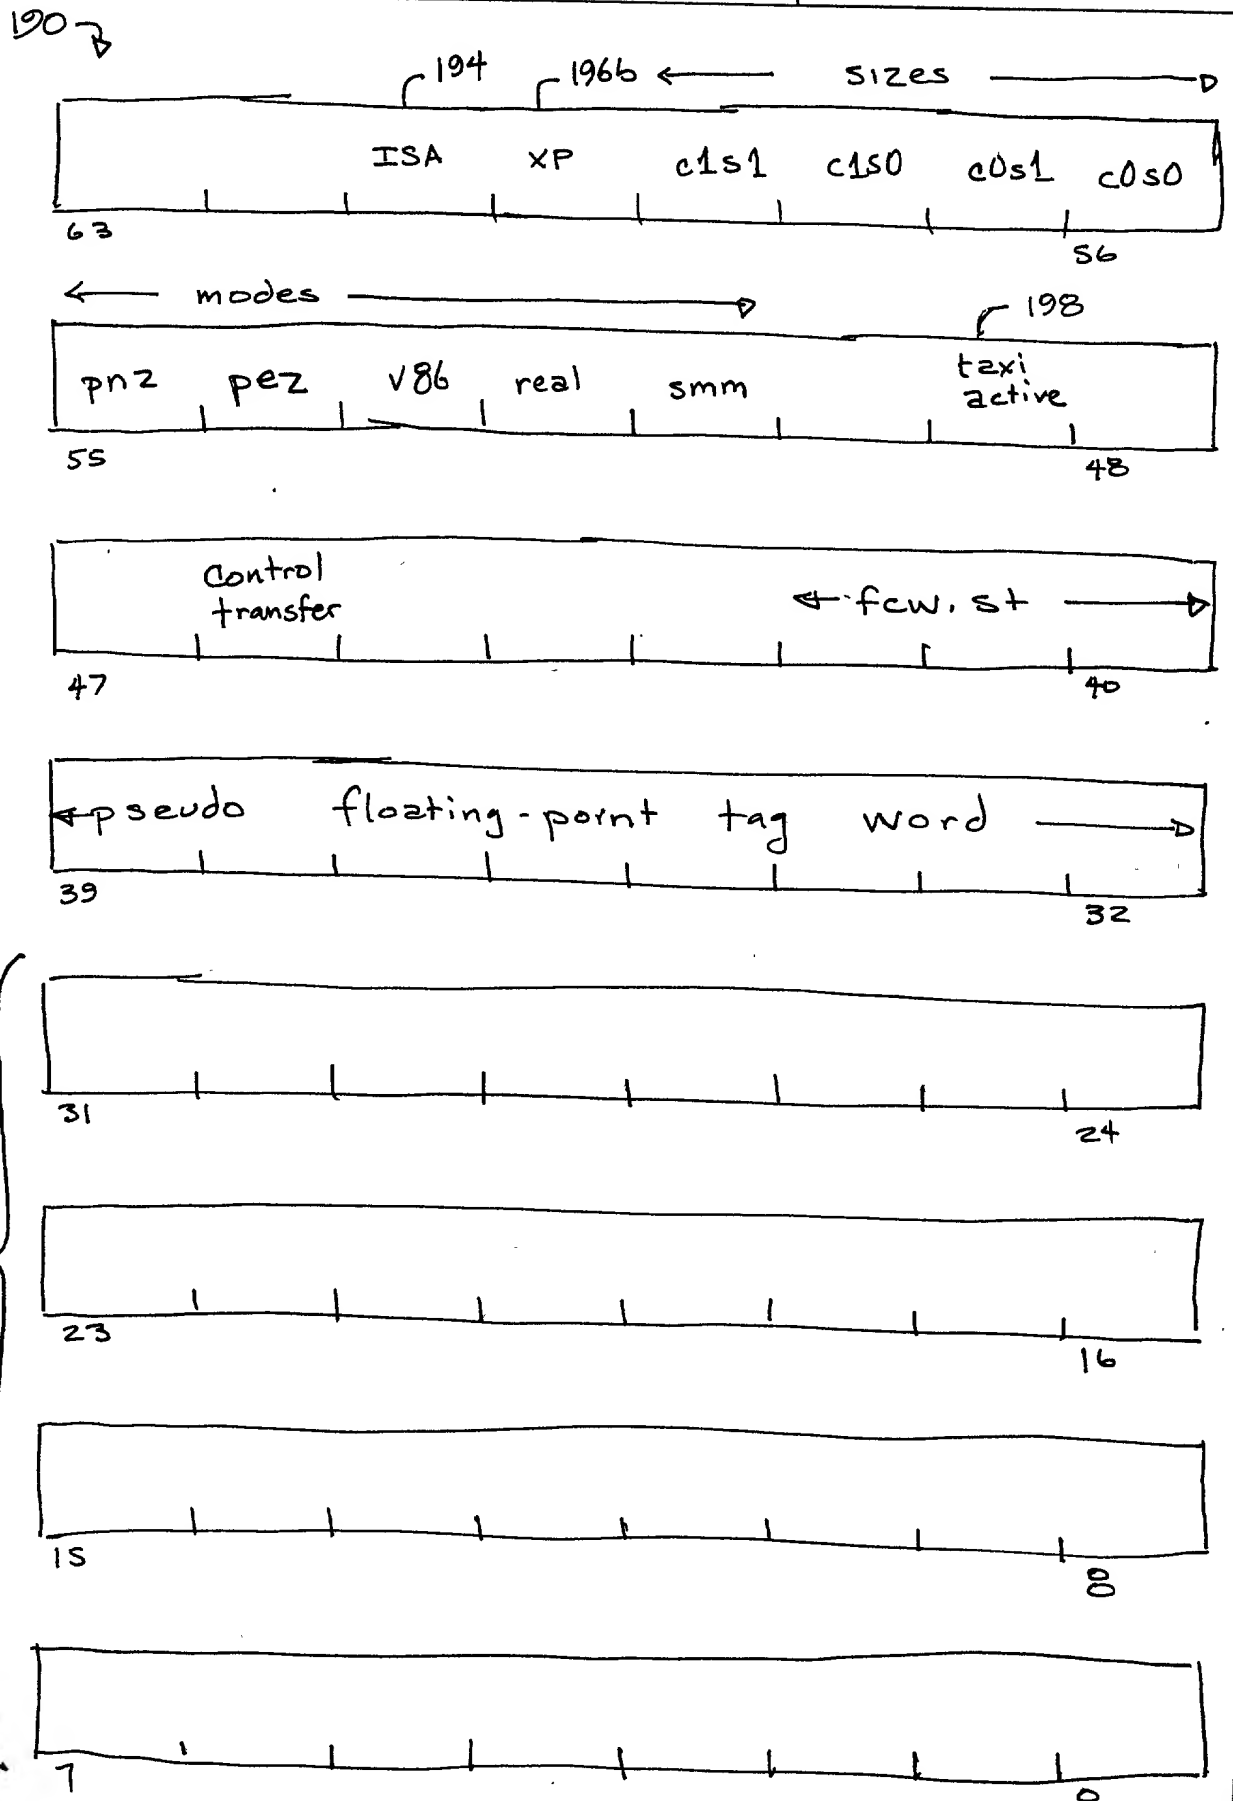 190
194 196b sizes
ISA XP c1s1 c1s0 c0s1 c0s0
63 56
modes 198
pnz pez v86 real smm taxi active
55 48
control transfer fcw.st
47 40
pseudo floating-point tag word
39 32
31 24
23 16
15 8
7 0